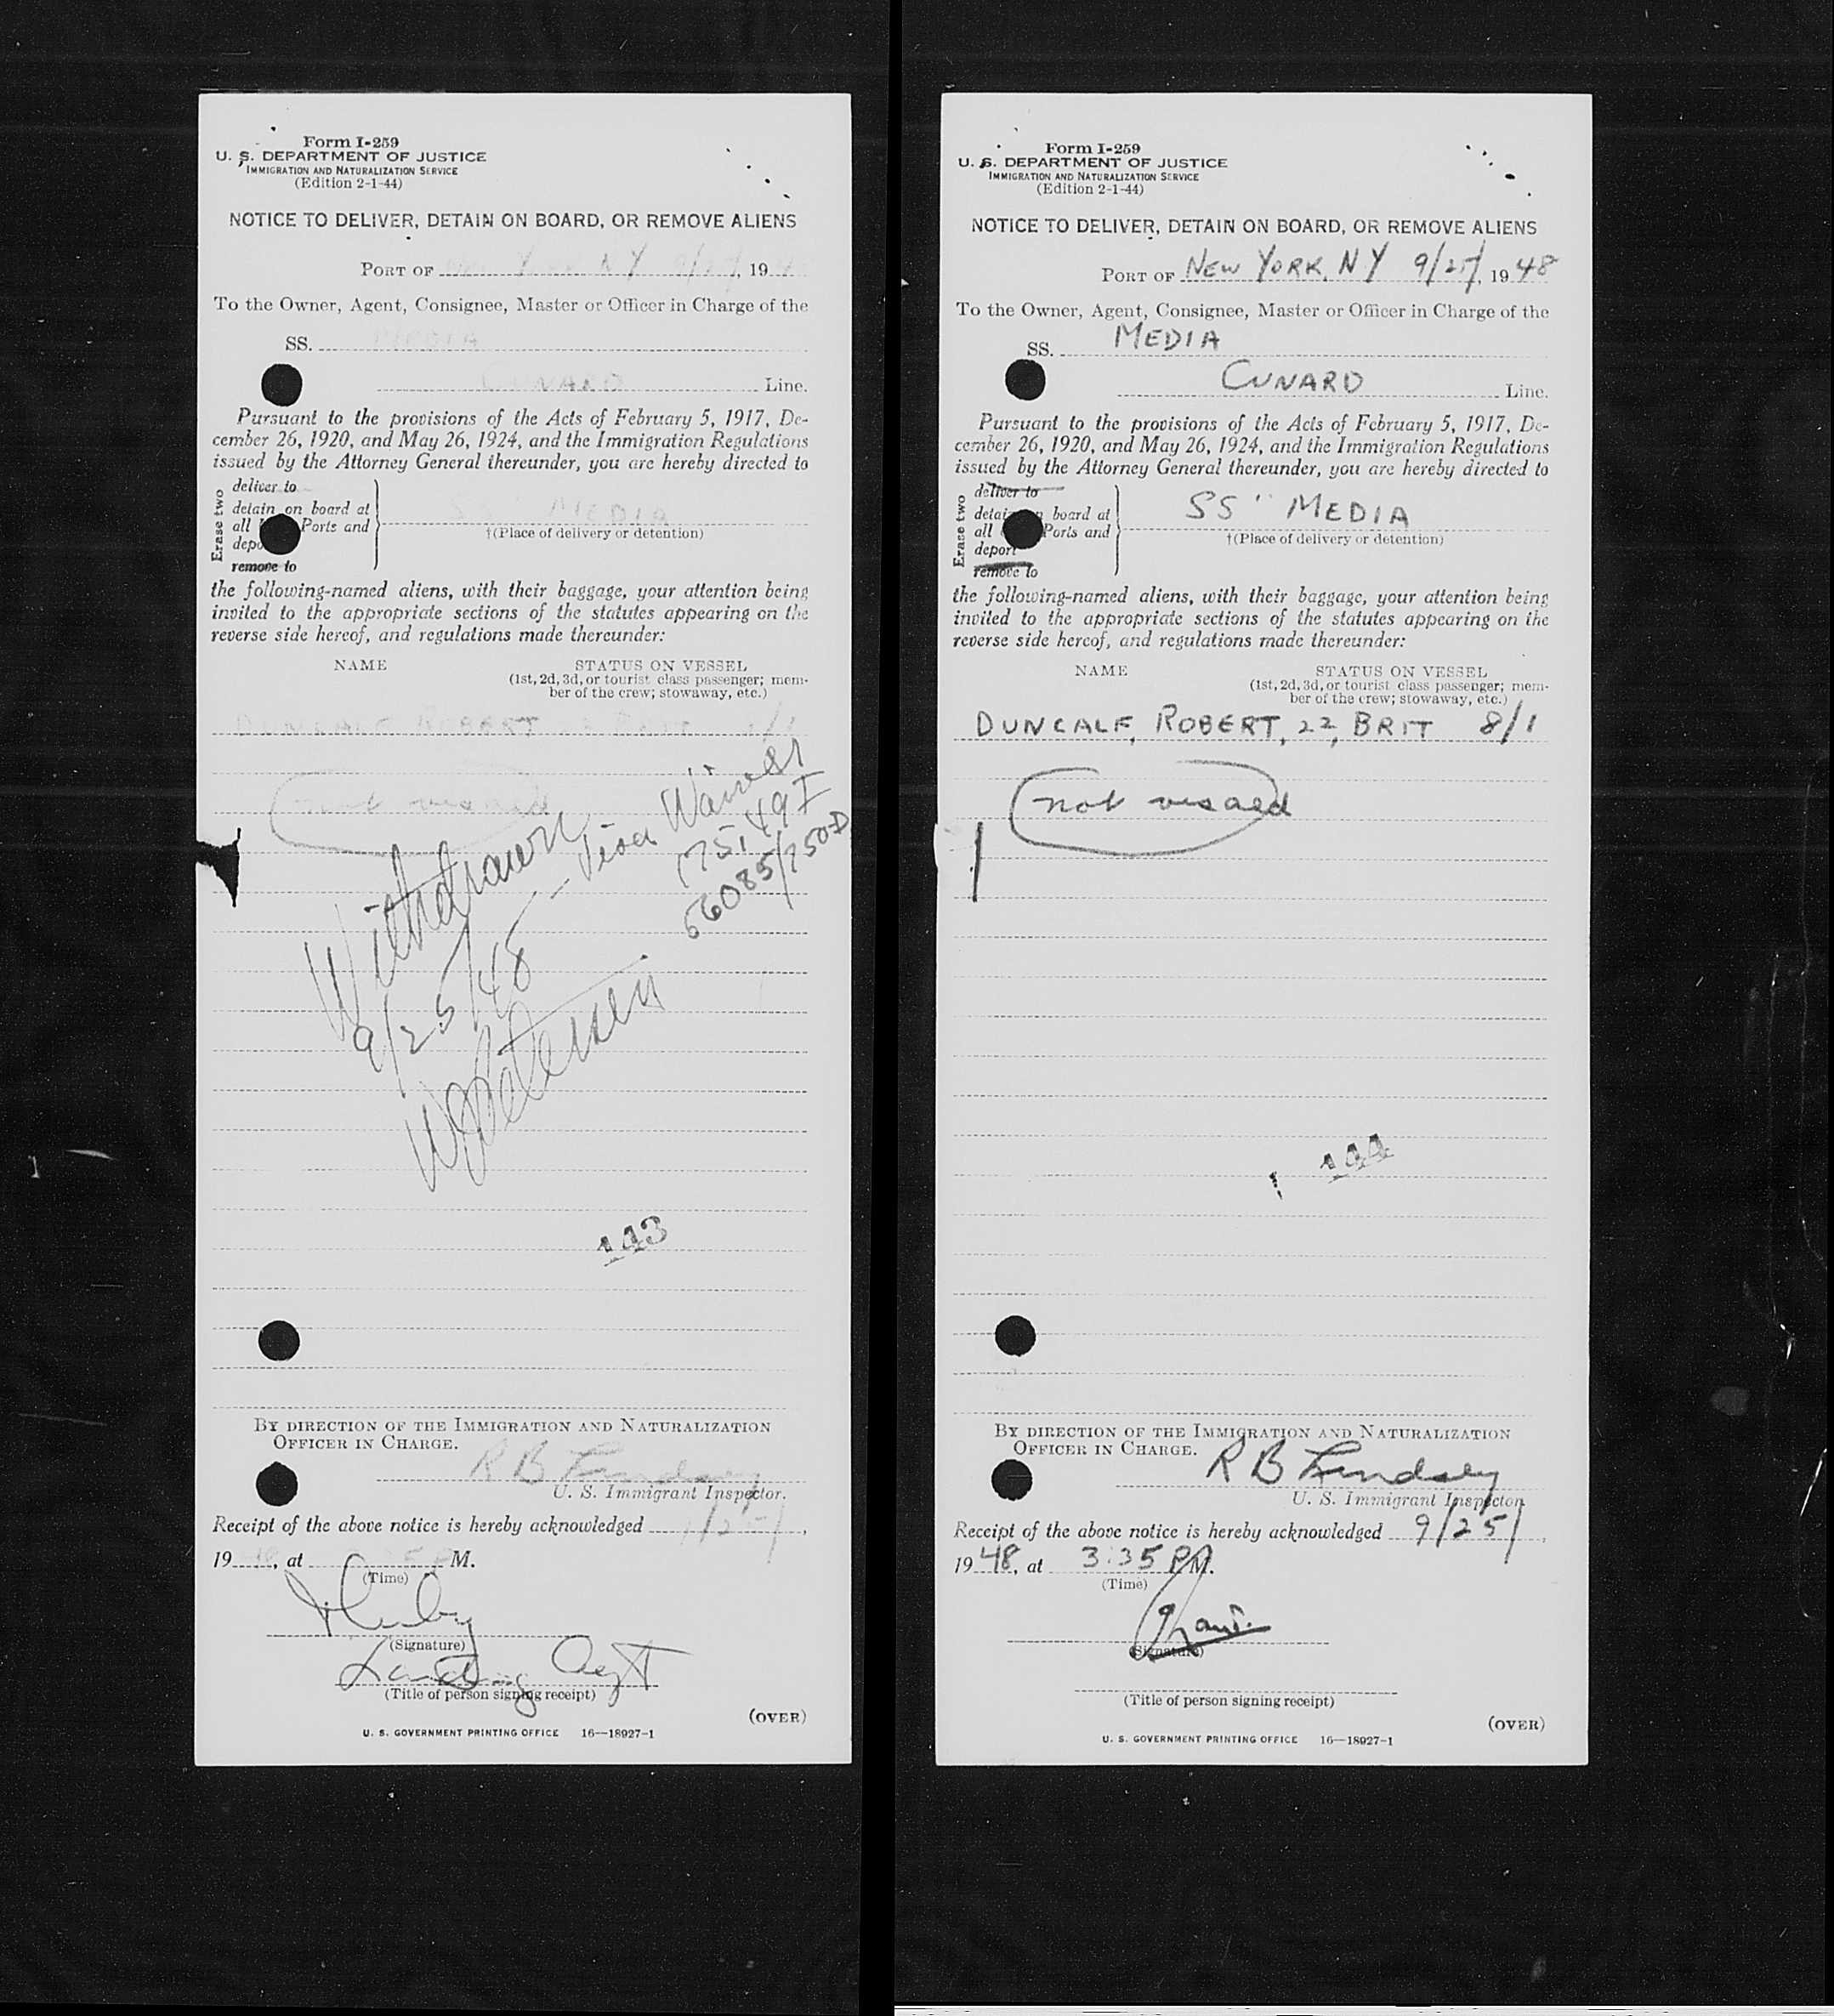 Form I-259
U. S. DEPARTMENT OF JUSTICE
IMMIGRATION AND NATURALIZATION SERVICE
(Edition 2-1-44)
NOTICE TO DELIVER, DETAIN ON BOARD, OR REMOVE ALIENS
PORT OF New York NY 9/25/, 1948
To the Owner, Agent, Consignee, Master or Officer in Charge of the
SS. MEDIA
CUNARD Line.
Pursuant to the provisions of the Acts of February 5, 1917, De-
cember 26, 1920, and May 26, 1924, and the Immigration Regulations
issued by the Attorney General thereunder, you are hereby directed to
Erase two
deliver to
detain on board at
all Ports and
depo
remove to
SS MEDIA
†(Place of delivery or detention)
the following-named aliens, with their baggage, your attention being
invited to the appropriate sections of the statutes appearing on the
reverse side hereof, and regulations made thereunder:
NAME STATUS ON VESSEL
(1st, 2d, 3d, or tourist class passenger; mem-
ber of the crew; stowaway, etc.)
ROBERT
not visaed
Withdrawn
9/25/48 – Visa Waiver
175.49 I
56085/750-D
W J Petersen
143
BY DIRECTION OF THE IMMIGRATION AND NATURALIZATION
OFFICER IN CHARGE.
R B Lindsey
U. S. Immigrant Inspector.
Receipt of the above notice is hereby acknowledged 9/25/,
1948, at M.
(Time)
(Signature)
Landing Agt
(Title of person signing receipt)
(OVER)
U. S. GOVERNMENT PRINTING OFFICE 16—18927-1
Form I-259
U. S. DEPARTMENT OF JUSTICE
IMMIGRATION AND NATURALIZATION SERVICE
(Edition 2-1-44)
NOTICE TO DELIVER, DETAIN ON BOARD, OR REMOVE ALIENS
PORT OF NEW YORK, NY 9/25/, 1948
To the Owner, Agent, Consignee, Master or Officer in Charge of the
SS. MEDIA
CUNARD Line.
Pursuant to the provisions of the Acts of February 5, 1917, De-
cember 26, 1920, and May 26, 1924, and the Immigration Regulations
issued by the Attorney General thereunder, you are hereby directed to
Erase two
deliver to
detain board at
all Ports and
deport
remove to
SS " MEDIA
†(Place of delivery or detention)
the following-named aliens, with their baggage, your attention being
invited to the appropriate sections of the statutes appearing on the
reverse side hereof, and regulations made thereunder:
NAME STATUS ON VESSEL
(1st, 2d, 3d, or tourist class passenger; mem-
ber of the crew; stowaway, etc.)
DUNCALF, ROBERT, 22, BRIT 8/1
not visaed
144
BY DIRECTION OF THE IMMIGRATION AND NATURALIZATION
OFFICER IN CHARGE.
R B Lindsey
U. S. Immigrant Inspector
Receipt of the above notice is hereby acknowledged 9/25/,
1948, at 3:35 P M.
(Time)
(Signature)
(Title of person signing receipt)
(OVER)
U. S. GOVERNMENT PRINTING OFFICE 16—18927-1